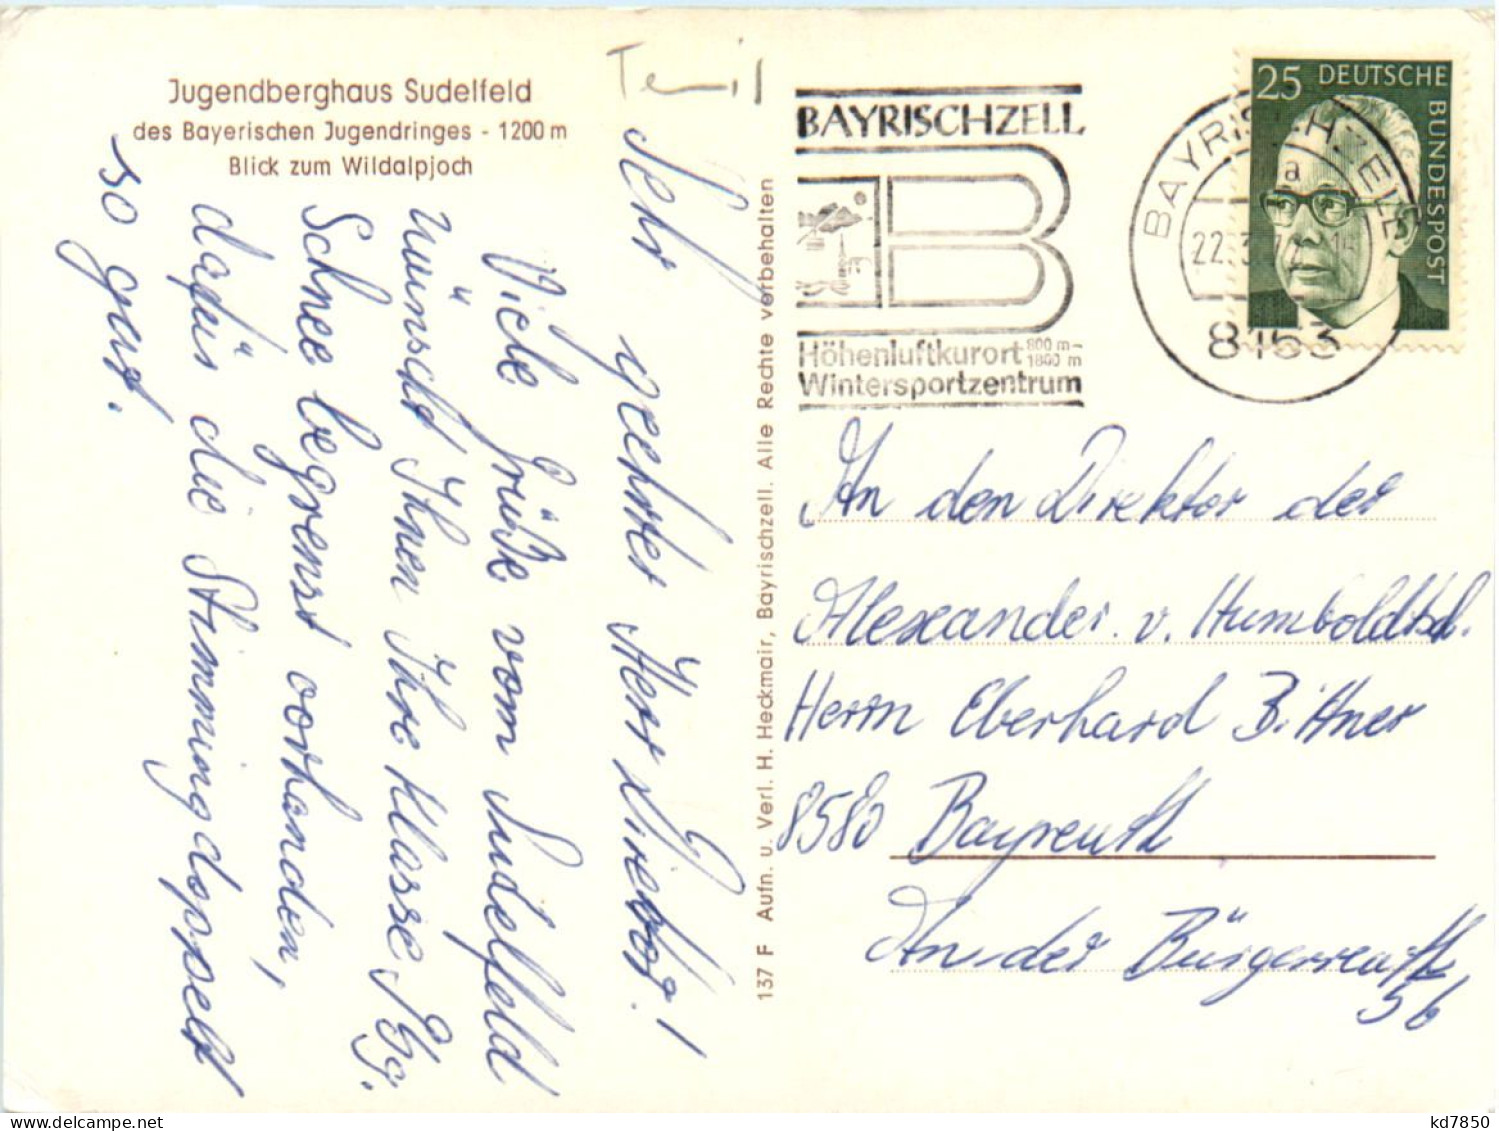 Jugendberghaus Sudelfeld
des Bayerischen Jugendringes - 1200 m
Blick zum Wildalpjoch
Sehr geehrter Herr Direktor!
Viele Grüße vom Sudelfeld
wünscht Ihnen Ihre Klasse
Schnee begrenzt vorhanden,
dafür die Stimmung doppelt
so gut.
137 F Aufn. u. Verl. H. Heckmair, Bayrischzell. Alle Rechte vorbehalten
BAYRISCHZELL
Höhenluftkurort 800 m - 1800 m
Wintersportzentrum
BAYRISCHZELL
a
8163
25 DEUTSCHE BUNDESPOST
An den Direktor der
Alexander v. Humboldtsch.
Herrn Eberhard Bittner
8580 Bayreuth
An der Bürgerreuth
5b
kd7850